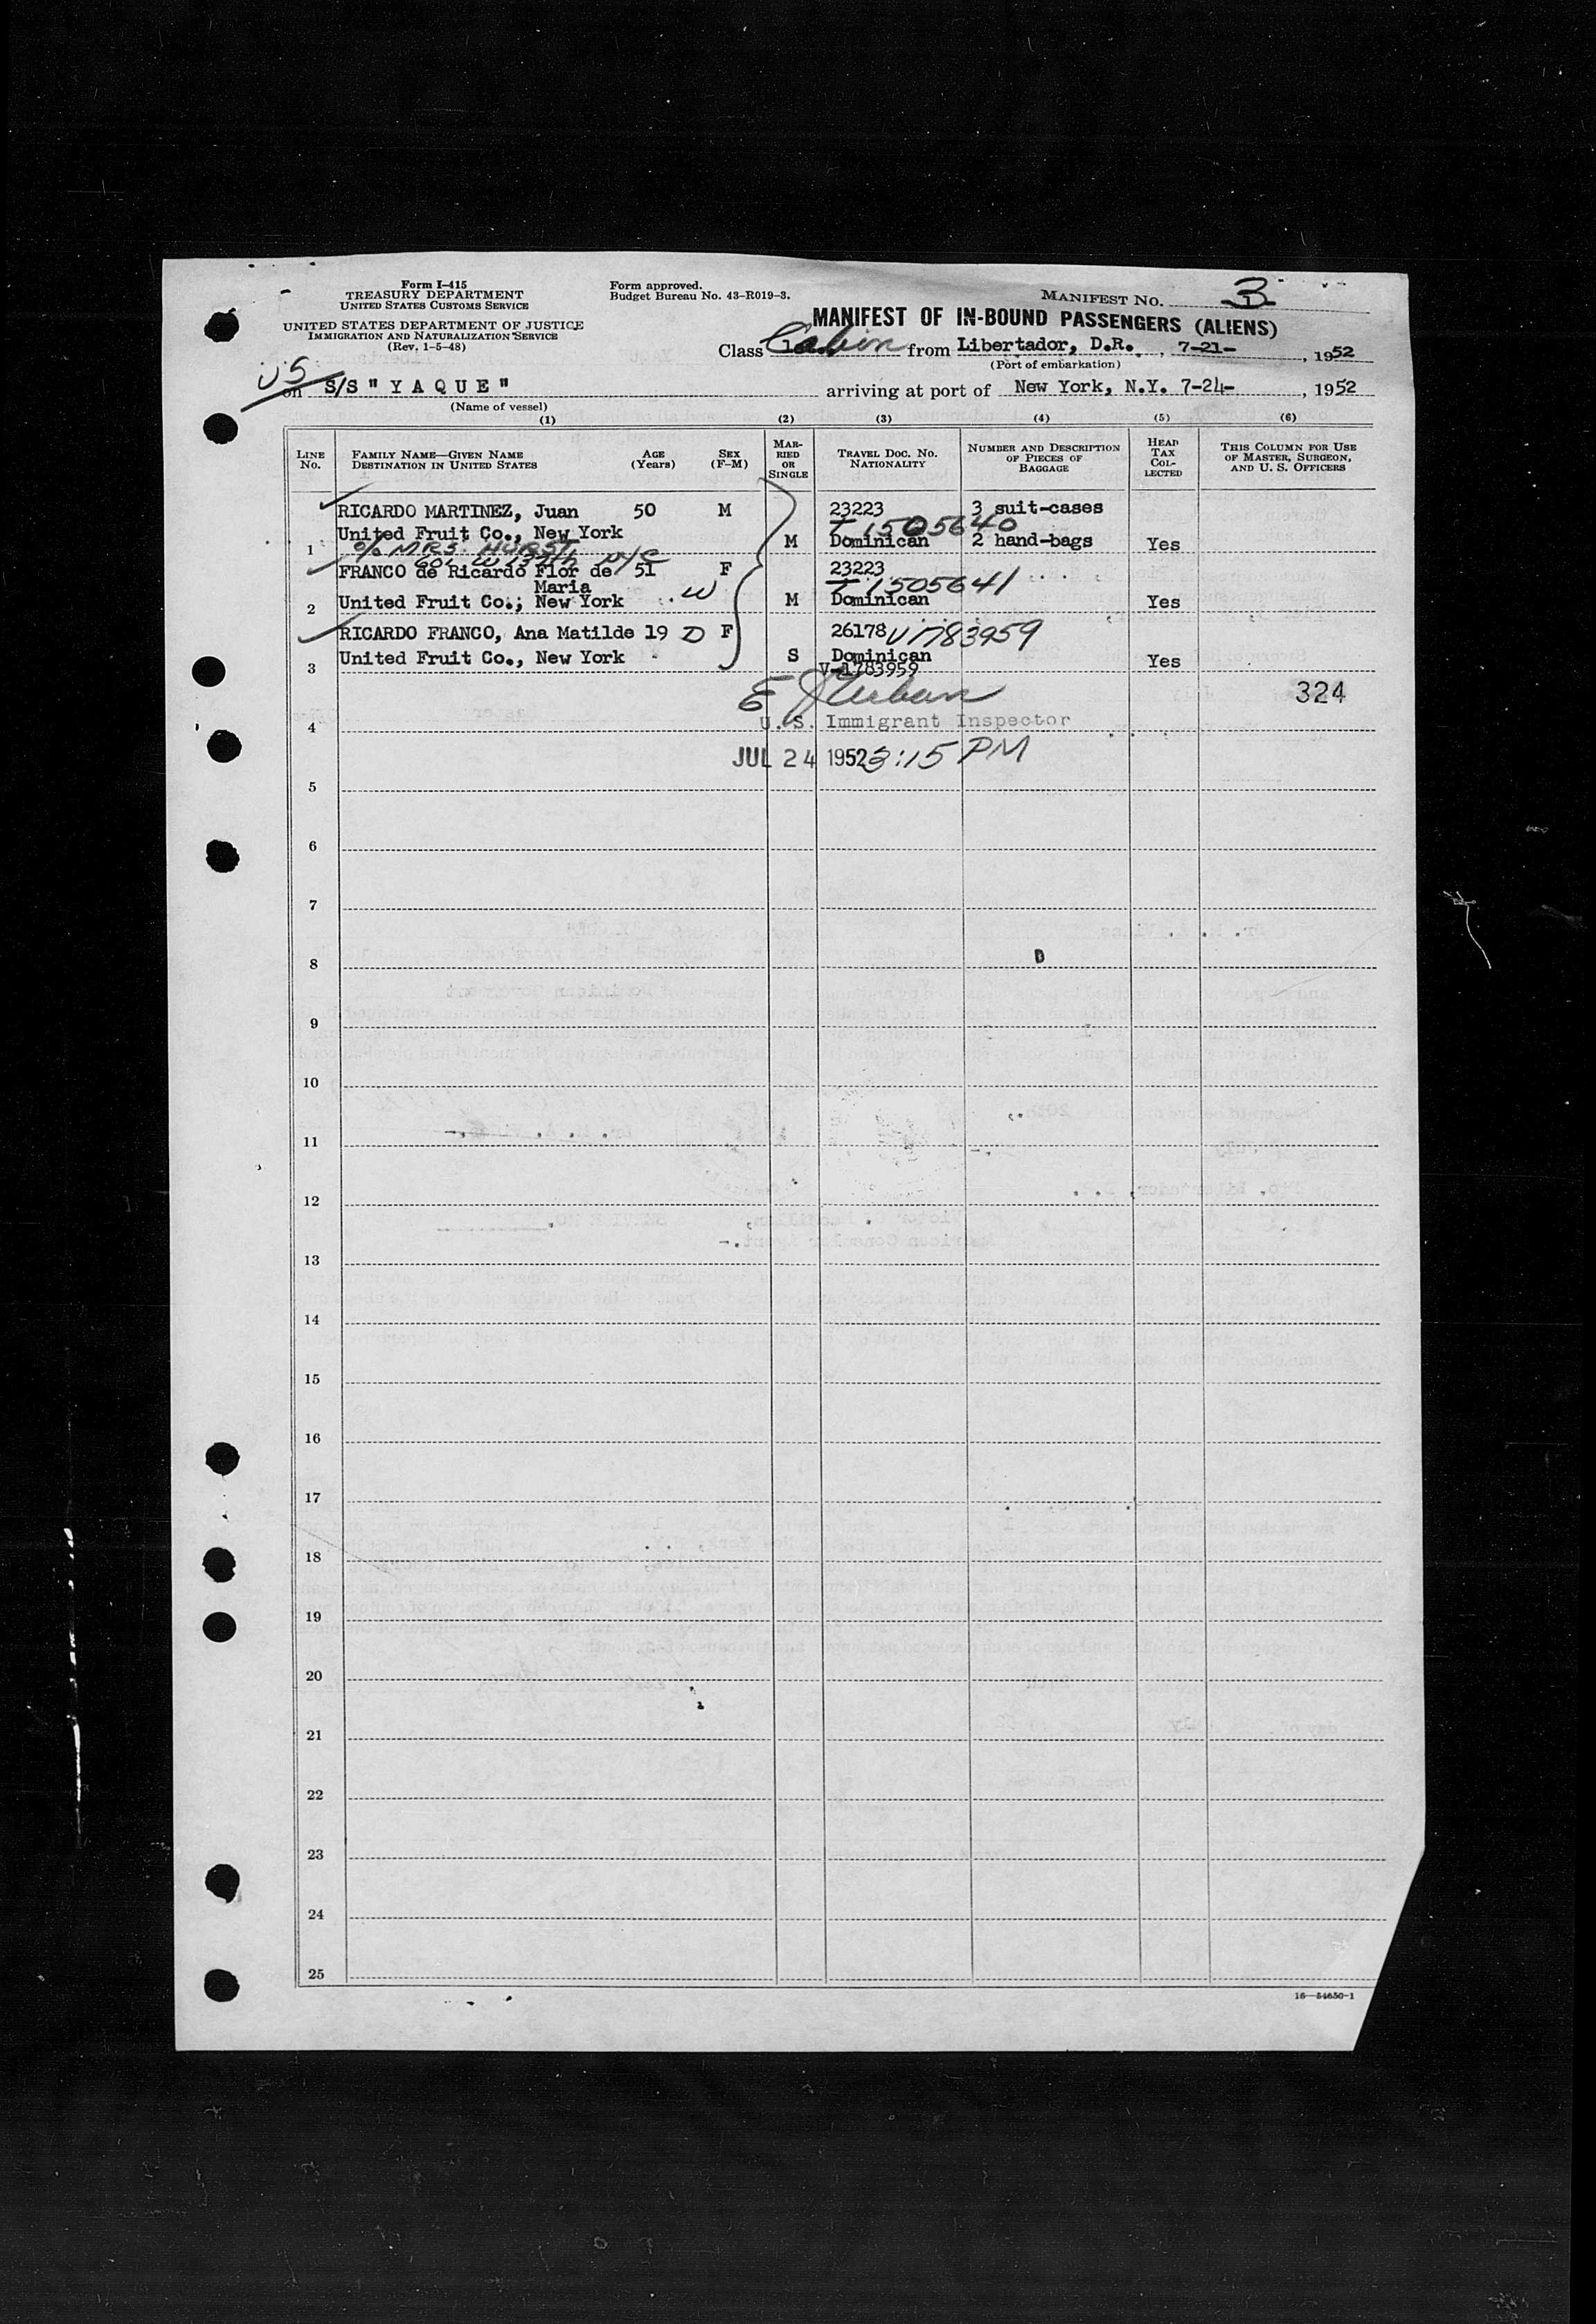 Form I-415
TREASURY DEPARTMENT
UNITED STATES CUSTOMS SERVICE
UNITED STATES DEPARTMENT OF JUSTICE
IMMIGRATION AND NATURALIZATION SERVICE
(Rev. 1-5-48)
Form approved.
Budget Bureau No. 43-R019-3.
MANIFEST NO. 3
MANIFEST OF IN-BOUND PASSENGERS (ALIENS)
Class Cabin from Libertador, D.R. , 7-21- , 1952
(Port of embarkation)
US
on S/S "YAQUE" arriving at port of New York, N.Y. 7-24- , 1952
(Name of vessel)
(1) (2) (3) (4) (5) (6)
LINE No. FAMILY NAME—GIVEN NAME DESTINATION IN UNITED STATES AGE (Years) SEX (F-M) MARRIED OR SINGLE TRAVEL DOC. NO. NATIONALITY NUMBER AND DESCRIPTION OF PIECES OF BAGGAGE HEAD TAX COLLECTED THIS COLUMN FOR USE OF MASTER, SURGEON, AND U. S. OFFICERS
RICARDO MARTINEZ, Juan 50 M 23223 3 suit-cases
United Fruit Co., New York T 1505640
1 M Dominican 2 hand-bags Yes
c/o MRS. HURST
W 137th NYC
FRANCO de Ricardo Flor de 51 F 23223
Maria W T 1505641
2 United Fruit Co., New York M Dominican Yes
RICARDO FRANCO, Ana Matilde 19 D F 26178 V1783959
3 United Fruit Co., New York S Dominican Yes
V-1783959
324
4 U. S. Immigrant Inspector
JUL 24 1952 3:15 PM
5
6
7
8
9
10
11
12
13
14
15
16
17
18
19
20
21
22
23
24
25
16—54650-1